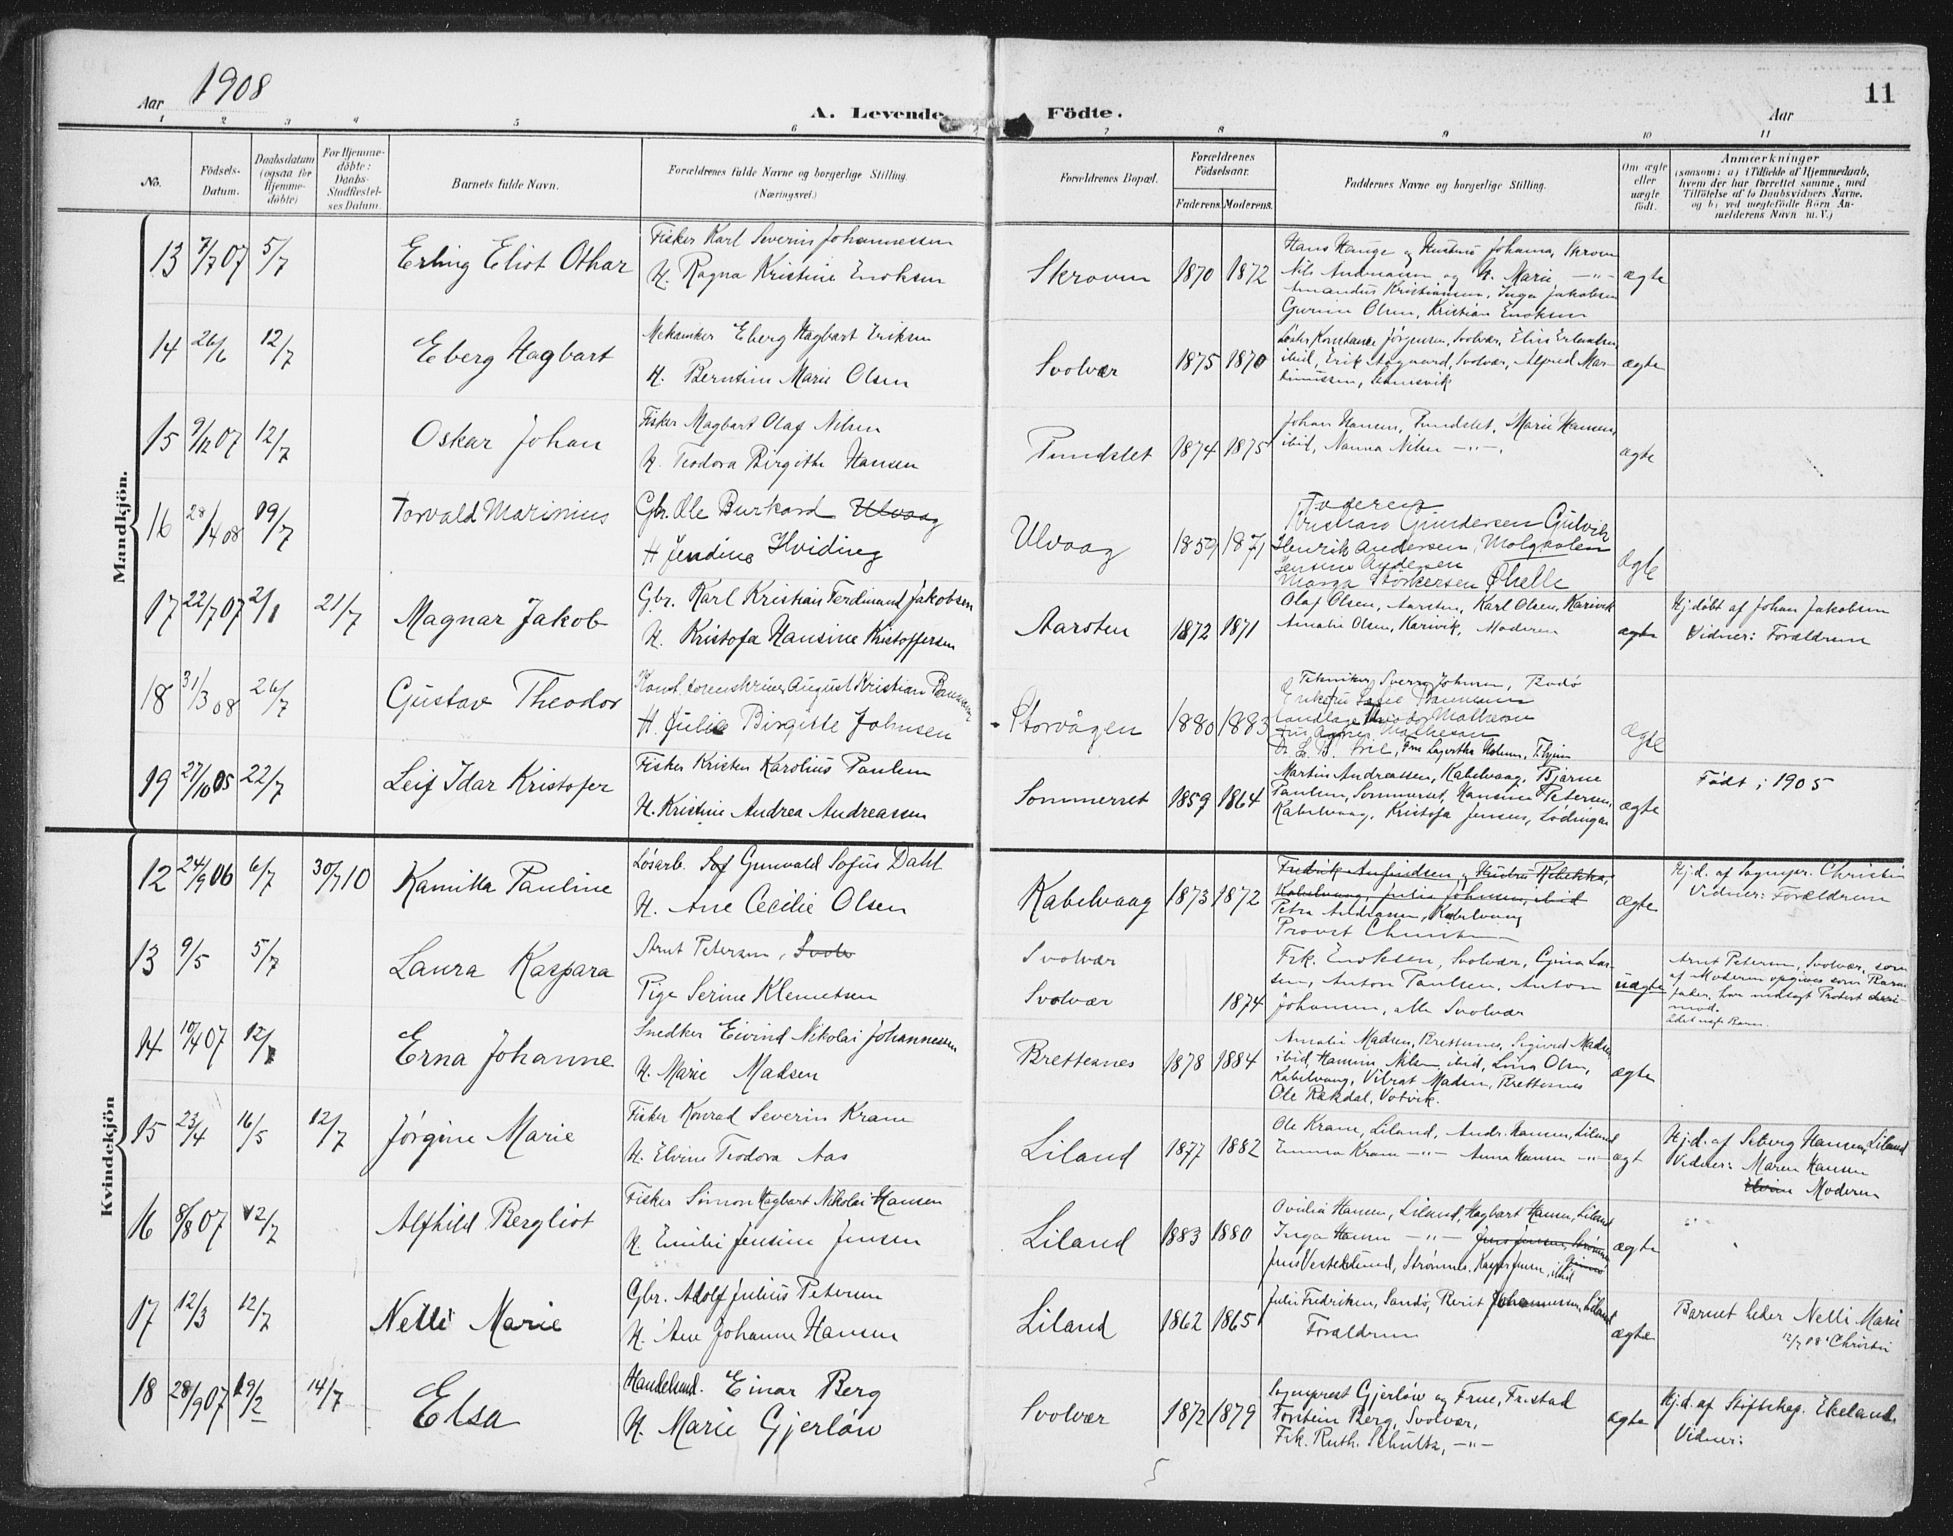 Aar 1908
A. Levende Födte.
Aar
11
1 2 3 4 5 6 7 8 9 10 11
No.
Födsels-
Datum.
Daabsdatum
(ogsaa for
Hjemme-
döbte)
For Hjemme-
döbte:
Daabs-
Stadfæstel-
ses Datum.
Barnets fulde Navn.
Forældrenes fulde Navne og borgerlige Stilling.
(Næringsvei.)
Forældrenes Bopæl.
Forældrenes
Födselsaar.
Faderens. Moderens.
Faddernes Navne og borgerlige Stilling.
Om ægte
eller
uægte
födt.
Anmærkninger
(saasom: a) i Tilfælde af Hjemmedaab,
hvem der har forrettet samme, med
Tilföielse af to Daabsvidners Navne.
og b) ved uægtefödte Börn An-
melderens Navn m. V.)
Mandkjön.
13 7/7 07 5/7 Erling Eliot Othar
Fisker Karl Severin Johannessen
H. Ragna Kristine Enoksen
Skroven 1870 1872
Hans Hauge og Hustru Johanna, Skroven
Nils Andreassen og H. Marie -"-
Amandus Kristiansen, Inga Jakobsen
Olsen, Kristian Enoksen
ægte
14 26/6 12/7 Eberg Hagbart
Mekaniker Eberg Hagbart Eriksen
H. Berntine Marie Olsen
Svolvær 1875 1870
Konstance Jørgensen, Svolvær, Elin Erlandsen
ibid, Erik Aagaard, Svolvær, Alfred Mar-
tinussen,
ægte
15 9/12 07 12/7 Oskar Johan
Fisker Magbart Olaf Nilsen
H. Teodora Birgitte Hansen
Pundslet 1874 1875
Johan Hansen, Pundslet, Marie Hansen,
ibid, Nanna Nilsen -"-.
ægte
16 28/4 08 19/7 Torvald Marinius
Gbr. Ole Burkard Ulvaag
H Jendine Hviding
Ulvaag 1859 1871
Faderen
Kristian Gundersen Gulvik
Henrik Andersen, Molgkolen
Jensine Andersen
Marga Størkersen Øhelle
ægte
17 22/7 07 2/1 21/7 Magnar Jakob
Gbr. Karl Kristian Ferdinand Jakobsen
H. Kristofa Hansine Kristoffersen
Aarsten 1872 1871
Olaf Olsen, Aarsten, Karl Olsen, Karivik
Amalie Olsen, Karivik, Moderen
ægte
Hj.døbt af Johan Jakobsen
Vidner: Forældrene
18 31/3 08 26/7 Gustav Theodor
August Kristian
H. Julie Birgitte Johnsen
Storvågen 1880 1883
Tekniker Sverre Johnsen, Bodø
Theodor Mathesen
Fru Lagertha Holmen,
ægte
19 27/10 05 22/7 Leif Idar Kristofer
Fisker Kristen Karolius Paulsen
H. Kristine Andrea Andreassen
Sommerset 1859 1864
Martin Andreassen, Kabelvaag, Bjarne
Paulsen, Sommerset, Hansine Petersen,
Kabelvaag, Kristofa Jensen, Lødingen
ægte
Født i 1905
Kvindekjön
12 24/9 06 6/7 30/7 10 Kamilla Pauline
Løsarb. Sof Gunvald Sofus Dahl
H. Ane Cecilie Olsen
Kabelvaag 1873 1872
Fredrik Anfindsen og Hustru Rebekka,
Kabelvaag, Julia Johnsen, ibid
Petra Andreasen, Kabelvaag
Provst Christie
ægte
Hj.d. af Sognepr. Christie
Vidner: Forældrene
13 9/5 5/7 Laura Kaspara
Arnt Petersen, Svolv
Pige Serine Klemetsen
Svolvær
Svolvær 1874
Frk. Enoksen, Svolvær, Gjina Lar-
sen, Anton Paulsen, Anton
Johansen, alle Svolvær
uægte
Arnt Petersen, Svolvær, som
af Moderen opgives som Barne-
fader, har nedlagt Protest deri-
mod.
14 10/4 07 12/7 Erna Johanne
Snedker Eivind Nikolai Johannessen
H. Marie Madsen
Brettesnes 1878 1884
Amalie Madsen, Brettesnes, Sigurd Madsen
ibid, Hansine Nilsen ibid, Lina Olsen,
Kabelvaag, Vibrat Madsen, Brettesnes
Ole Rakdal, Votvik.
ægte
15 23/4 16/5 12/7 Jørgine Marie
Fisker Konrad Severin Krane
H. Elvine Teodora Aas
Liland 1877 1882
Ole Krane, Liland, Andr. Hansen, Liland
Emma Krane -"- Anna Hansen -"-
ægt
Hj.d. af Seberg Hansen, Liland
Vidner: Maren Hansen
Elvine Moderen
16 8/8 07 12/7 Alfhild Bergliot
Fisker Simon Hagbart Nikolai Hansen
H. Emilie Jensine Jensen
Liland 1883 1880
Ovidia Hansen, Liland, Hagbart Hansen, Liland
Inga Hansen -"- Jens Jensen, Strømnes
Jens Vesteklund, Strømnes, Kasper Jensen, ibid
ægte
17 12/3 12/7 Nelli Marie
Gbr. Adolf Julius Petersen
H. Ane Johanne Hansen
Liland 1862 1865
Julie Fredriksen, Sandø, Berit Johannessen, Liland
Forældrene
ægte
Barnet heder Nelli Marie
12/7 08 Christie
18 28/9 07 19/2 14/7 Elsa
Handelsmd. Einar Berg
H. Marie Gjerløw
Svolvær 1872 1879
Sogneprest Gjerløw og Frue, Frestad
Torstein Berg, Svolvær,
Frk. Ruth Schultz, -"-
ægte
Hj.d. af Stiftskap. Ekeland.
Vidner: